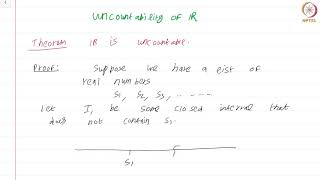 NPTEL
uncountability of IR
Theorem IR is uncountable.
Proof: Suppose we have a list of
real numbers
S1, S2, S3, ......
Let I, be some closed interval that
does not contain S1.
S1